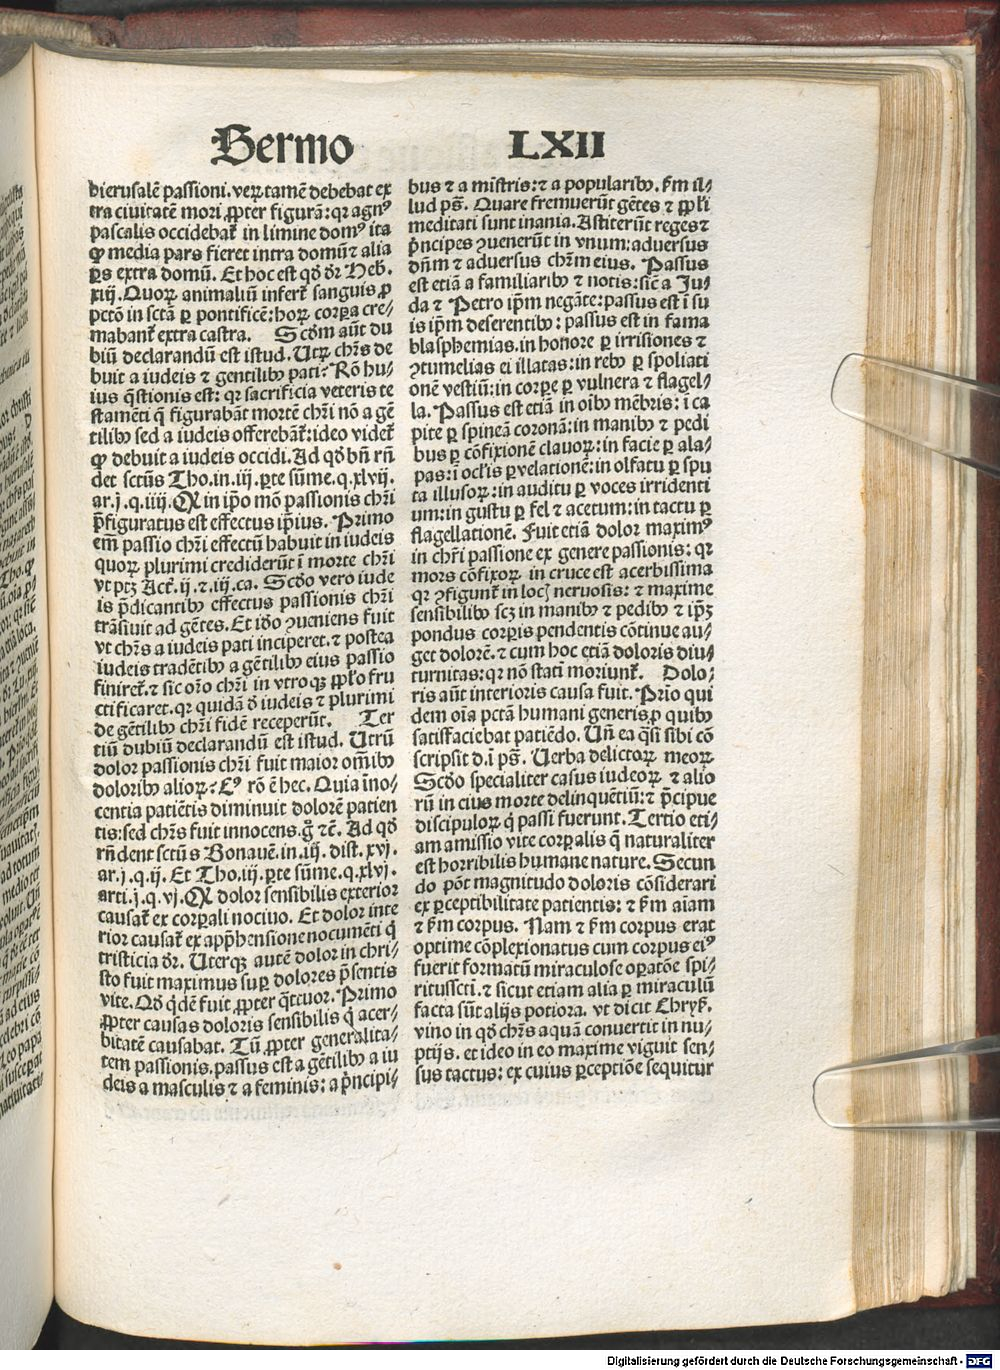 Sermo LXII
hierusalē passioni. verꝝtamē debebat ex
tra ciuitatē mori ꝓpter figurā: qꝛ agnꝰ
pascalis occidebat᷑ in limine domꝰ ita
ꝙ media pars fieret intra domū ⁊ alia
ꝑs extra domū. Et hoc est qḋ dr̄ Heb.
xiij. Quoꝝ animaliū infert᷑ sanguis ꝓ
pctō in sctā ꝑ pontificē: hoꝝ corpa cre⸗
mabant᷑ extra castra. Scd̄m aūt du
biū declarandū est istud. Utꝝ chrs̄ de
buit a iudeis ⁊ gentilibꝰ pati? Rō hu⸗
ius q̄stionis est: qꝛ sacrificia veteris te
stamēti q̄ figurabāt mortē chr̄i nō a gē
tilibꝰ sed a iudeis offerebāt᷑: ideo videt᷑
ꝙ debuit a iudeis occidi. Ad qḋ bn̄ rn̄
det sctūs Tho. in. iij. ꝑte sūme. q. xlvij.
ar. j. q. iiij. Ꝙ in ipo mō passionis chr̄i
p̄figuratus est effectus ipīus. Primo
em̄ passio chr̄i effectū habuit in iudeis
quoꝝ plurimi crediderūt ī morte chr̄i
vt ptꝫ Act᷑. ij. ⁊. iij. ca. Scd̄o vero iude
is p̄dicantibꝰ effectus passionis chr̄i
trāsiuit ad gētes. Et iḋo ꝯueniens fuit
vt chrs̄ a iudeis pati inciperet. ⁊ postea
iudeis tradētibꝰ a gētilibꝰ eius passio
finiret᷑. ⁊ sic or̄o chr̄i in vtroqꝫ ppl̄o fru
ctificaret. qꝛ quidā ḋ iudeis ⁊ plurimi
de gētilibꝰ chr̄i fidē receperūt. Ter
tiū dubiū declarandū est istud. Utrū
dolor passionis chr̄i fuit maior om̄ibꝰ
doloribꝰ alioꝝ? Cꝰ rō ē hec. Quia īno⸗
centia patiētis diminuit dolorē patien
tis: sed chrs̄ fuit innocens. g̊ ⁊c̄. Ad qḋ
rn̄dent sctūs Bonauē. in. iij. dist. xvj.
ar. j. q. ij. Et Tho. iij. ꝑte sūme. q. xlvj.
arti. j. q. vj. Ꝙ dolor sensibilis exterior
causat᷑ ex corpali nociuo. Et dolor inte
rior causat᷑ ex app̄hensione nocumēti q̇
tristicia dr̄. Uterqꝫ autē dolor in chri⸗
sto fuit maximus suꝑ dolores p̄sentis
vite. Qḋ q̇dē fuit ꝓpter q̄tuor. Primo
ꝓpter causas doloris sensibilis q̇ acer⸗
bitatē causabat. Tū ꝓpter generalita⸗
tem passionis. passus est a gētilibꝰ a iu
deis a masculis ⁊ a feminis: a p̄ncipi⸗
bus ⁊ a mīstris: ⁊ a popularibꝰ. fm̄ il⸗
lud ps̄. Quare fremuerūt gētes ⁊ ppl̄i
meditati sunt inania. Astiterūt reges ⁊
p̄ncipes ꝯuenerūt in vnum: aduersus
dn̄m ⁊ aduersus chr̄m eius. Passus
est etiā a familiaribꝰ ⁊ notis: sic̄ a Iu⸗
da ⁊ Petro ip̄m negāte: passus est ī su
is ip̄m deserentibꝰ: passus est in fama
blasphemias. in honore ꝑ irrisiones ⁊
ꝯtumelias ei illatas: in rebꝰ ꝑ spoliati
onē vestiū: in corpe ꝑ vulnera ⁊ flagel⸗
la. Passus est etiā in oībꝰ mēbris: ī ca
pite ꝑ spineā coronā: in manibꝰ ⁊ pedi
bus ꝑ cōfixionē clauoꝝ: in facie ꝑ ala⸗
pas: ī ocl̄is ꝑ velationē: in olfatu ꝑ spu
ta illusoꝝ: in auditu ꝑ voces irridenti
um: in gustu ꝑ fel ⁊ acetum: in tactu ꝑ
flagellationē. Fuit etiā dolor maximꝰ
in chr̄i passione ex genere passionis: qꝛ
mors cōfixoꝝ in cruce est acerbissima
qꝛ ꝯfigunt᷑ in locꝭ neruosis: ⁊ maxime
sensibilibꝰ scꝫ in manibꝰ ⁊ pedibꝰ ⁊ ip̄ꝫ
pondus corpis pendentis cōtinue au⸗
get dolorē. ⁊ cum hoc etiā doloris diu⸗
turnitas: qꝛ nō stati moriunt᷑. Dolo⸗
ris aūt interioris causa fuit. Prīo qui
dem oīa pctā humani generis ꝓ quibꝰ
satisfaciebat patiēdo. Uñ ea q̄si sibi cō
scripsit d. ī ps̄. Uerba delictoꝝ meoꝝ.
Scd̄o specialiter casus iudeoꝝ ⁊ alio
rū in eius morte delinquētiū: ⁊ p̄cipue
discipuloꝝ q̇ passi fuerunt. Tertio eti⸗
am amissio vite corpalis q̄ naturaliter
est horribilis humane nature. Secun
do pōt magnitudo doloris cōsiderari
ex ꝑceptibilitate patientis: ⁊ fm̄ aīam
⁊ fm̄ corpus. Nam ⁊ fm̄ corpus erat
optime cōplexionatus cum corpus eiꝰ
fuerit formatū miraculose opatōe spi⸗
ritussctī. ⁊ sicut etiam alia ꝑ miraculū
facta sūt alijs potiora. vt dicit Chryẜ.
vino in qḋ chrs̄ aquā conuertit in nu⸗
ptijs. et ideo in eo maxime viguit sen⸗
sus tactus: ex cuius ꝑceptiōe sequitur
Digitalisierung gefördert durch die Deutsche Forschungsgemeinschaft - DFG